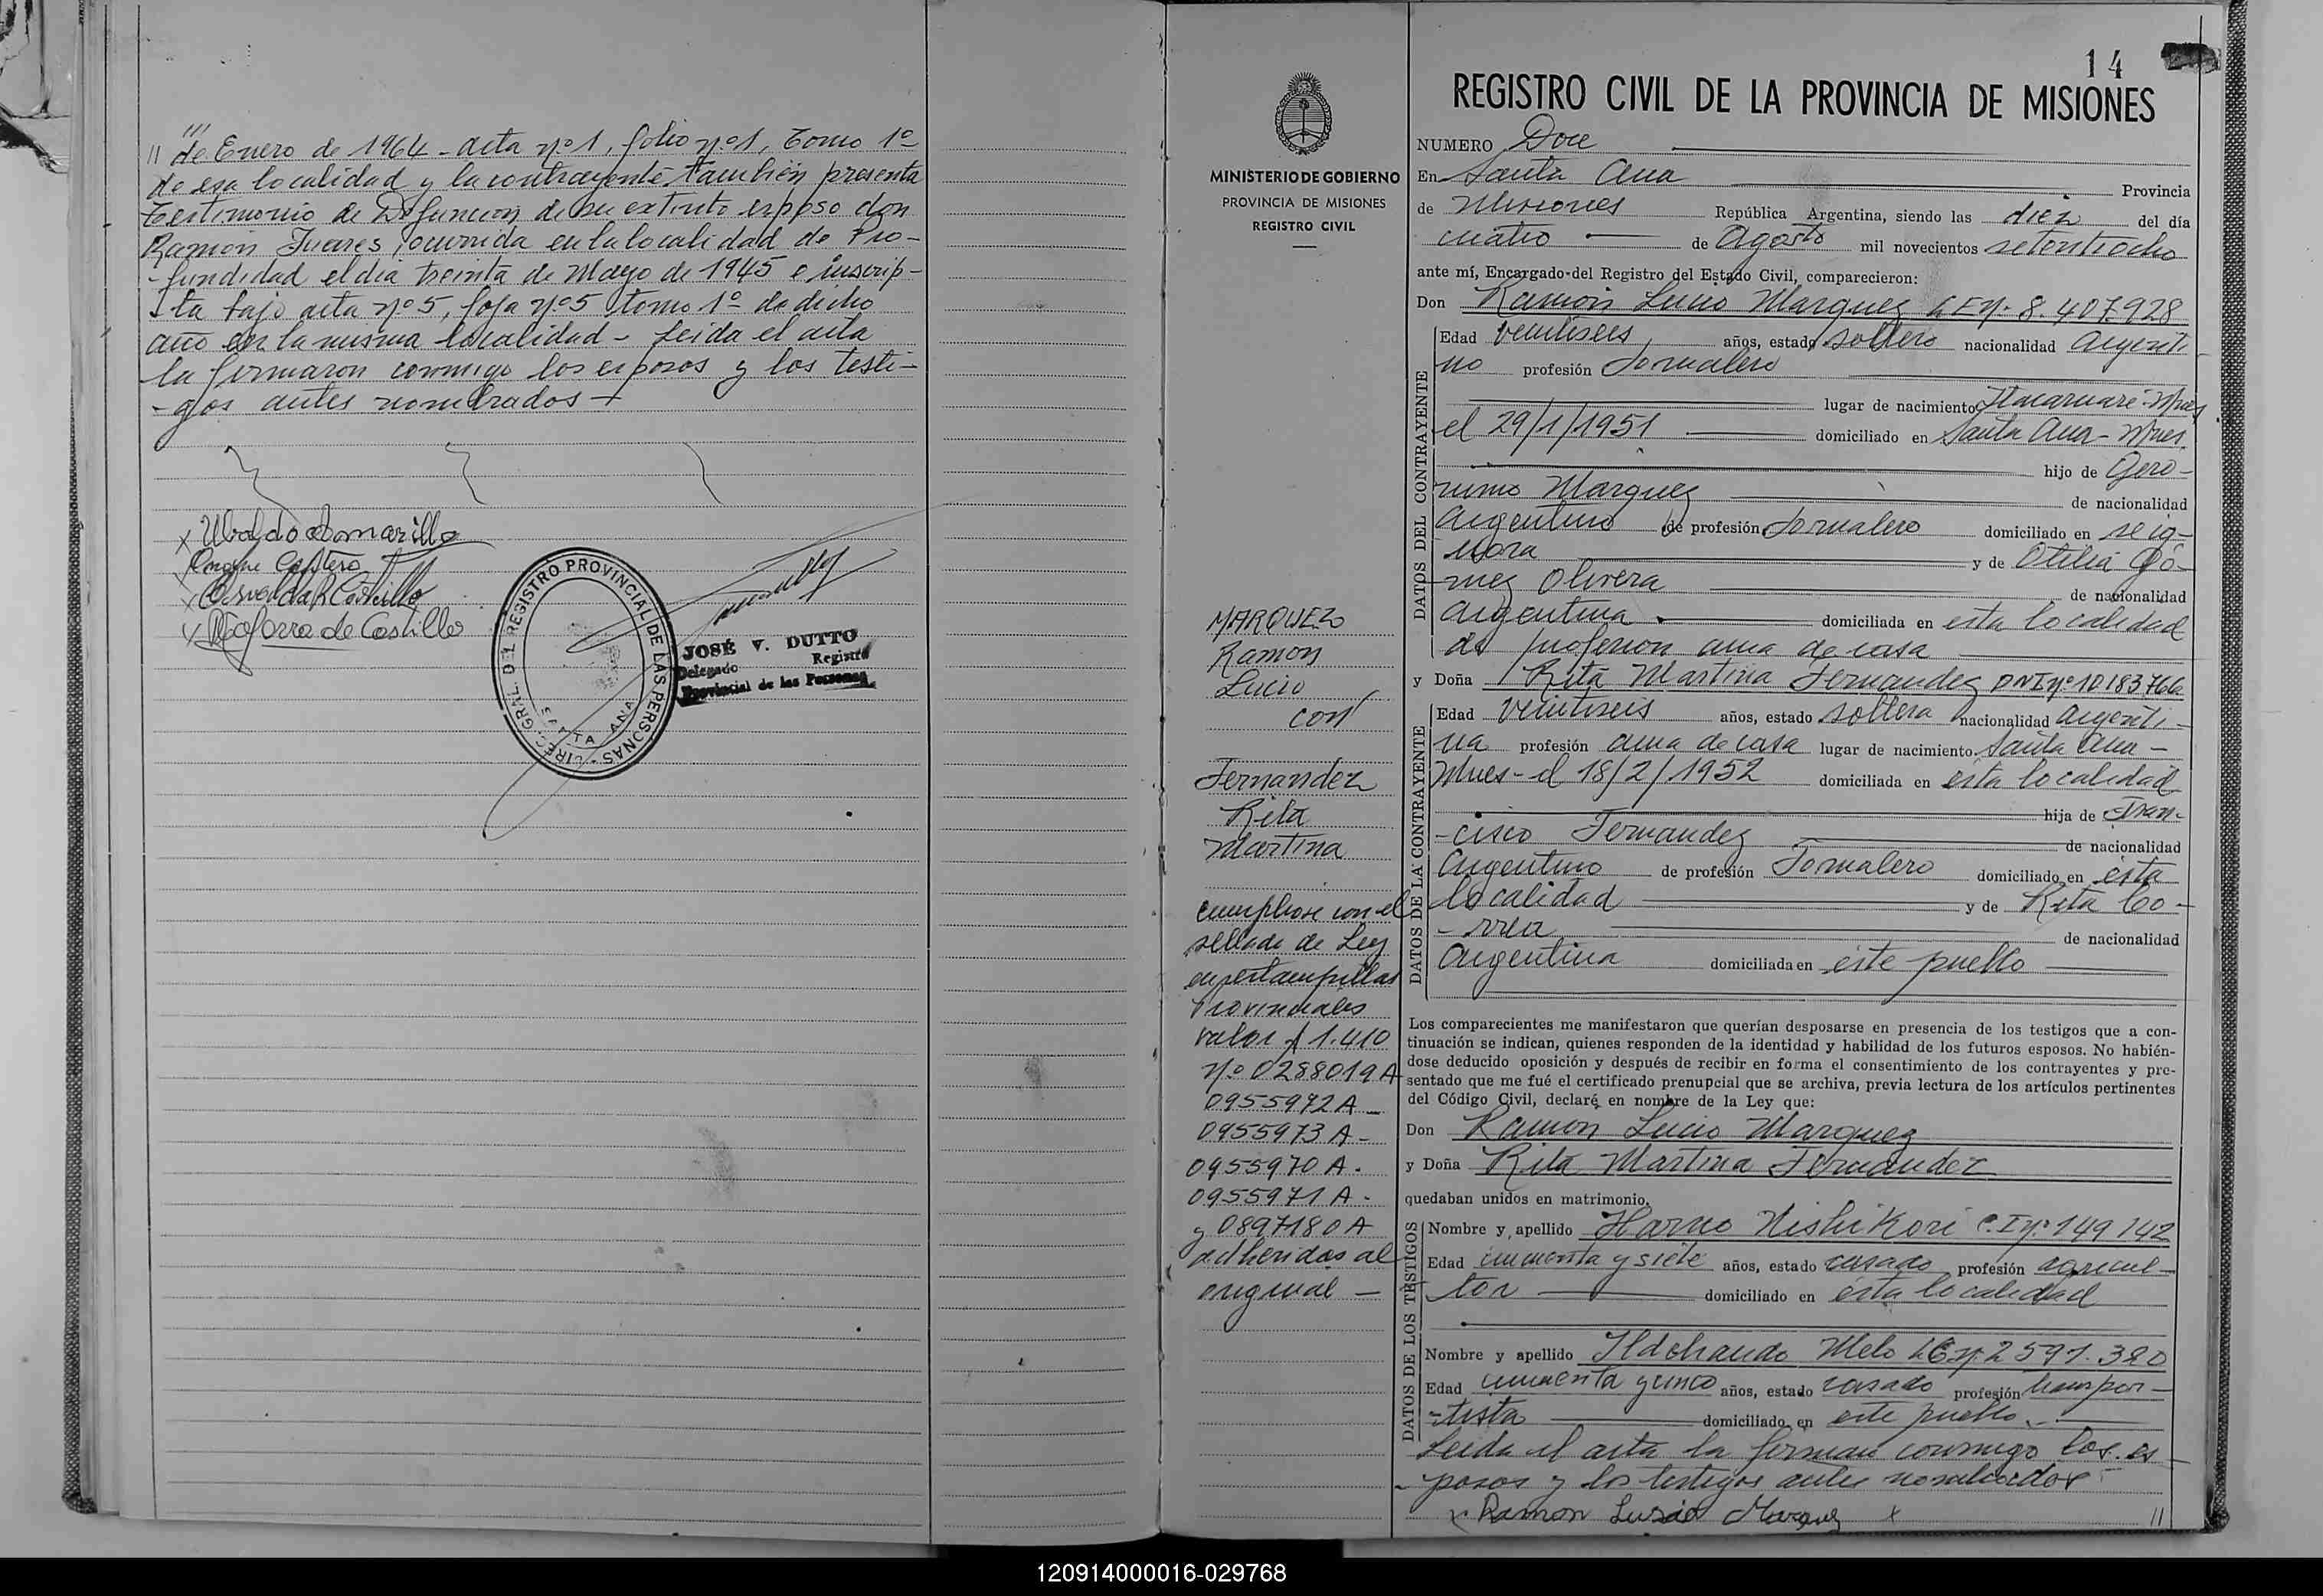 de Enero de 1964 - acta nº 1, folio nº 1, Tomo 1º
de esa localidad y la contrayente también presenta
testimonio de Defunción de su extinto esposo don
Ramón Juares, ocurrida en la localidad de Pro-
-fundidad el dia treinta de Mayo de 1945 e inscrip-
ta bajo acta nº 5, foja nº 5 tomo 1º de dicho
año en la misma localidad - Leida el acta
la firmaron conmigo los esposos y los testi-
-gos antes nombrados -
x Ubaldo
Castillo
de Castillo
DIREC. GRAL. DEL REGISTRO PROVINCIAL DE LAS PERSONAS
SANTA ANA
JOSÉ V. DUTTO
Delegado Registro
Provincial de las Personas
14
REGISTRO CIVIL DE LA PROVINCIA DE MISIONES
MINISTERIO DE GOBIERNO
PROVINCIA DE MISIONES
REGISTRO CIVIL
MARQUEZ
Ramon
Lucio
con
Fernandez
Rita
Martina
cumpliose con el
sellado de Ley
en estampillas
Provinciales
valor $ 1.410
Nº 0288019 A
0955972 A -
0955973 A -
0955970 A -
0955971 A -
y 0897180 A
adheridas al
original -
NUMERO Doce
En Santa Ana Provincia
de Misiones República Argentina, siendo las diez del día
cuatro de Agosto mil novecientos setentiocho
ante mí, Encargado del Registro del Estado Civil, comparecieron:
Don Ramón Lucio Marquez L E Nº 8.407.928
DATOS DEL CONTRAYENTE
Edad veintiseis años, estado soltero nacionalidad argenti-
no profesión Jornalero
lugar de nacimiento Itacaruaré - Mnes
el 29/1/1951 domiciliado en Santa Ana - Mnes
hijo de Gero-
nimo Marquez de nacionalidad
argentino de profesión Jornalero domiciliado en se ig-
nora y de Otilia Gó-
mez Olivera de nacionalidad
argentina domiciliada en esta localidad
de profesion ama de casa
y Doña Rita Martina Fernandez DNI Nº 10183766
DATOS DE LA CONTRAYENTE
Edad veintiseis años, estado soltera nacionalidad argenti-
na profesión ama de casa lugar de nacimiento Santa Ana -
Mnes - el 18/2/1952 domiciliada en esta localidad
hija de Fran-
-cisco Fernandez de nacionalidad
argentino de profesión Jornalero domiciliado en esta
localidad y de Rita Co-
-rrea de nacionalidad
argentina domiciliada en este pueblo
Los comparecientes me manifestaron que querían desposarse en presencia de los testigos que a con-
tinuación se indican, quienes responden de la identidad y habilidad de los futuros esposos. No habién-
dose deducido oposición y después de recibir en forma el consentimiento de los contrayentes y pre-
sentado que me fué el certificado prenupcial que se archiva, previa lectura de los artículos pertinentes
del Código Civil, declaré en nombre de la Ley que:
Don Ramon Lucio Marquez
y Doña Rita Martina Fernandez
quedaban unidos en matrimonio.
DATOS DE LOS TESTIGOS
Nombre y apellido Haruo Nishikori C.I Nº 149142
Edad cincuenta y siete años, estado casado profesión agricul-
tor domiciliado en esta localidad
Nombre y apellido Melo LE Nº 2591.320
Edad cincuenta y cinco años, estado casado profesión transpor-
-tista domiciliado en este pueblo
Leida el acta la firman conmigo los es-
-posos y los testigos antes nombrados -
x Ramon Lusio Marquez x
120914000016-029768